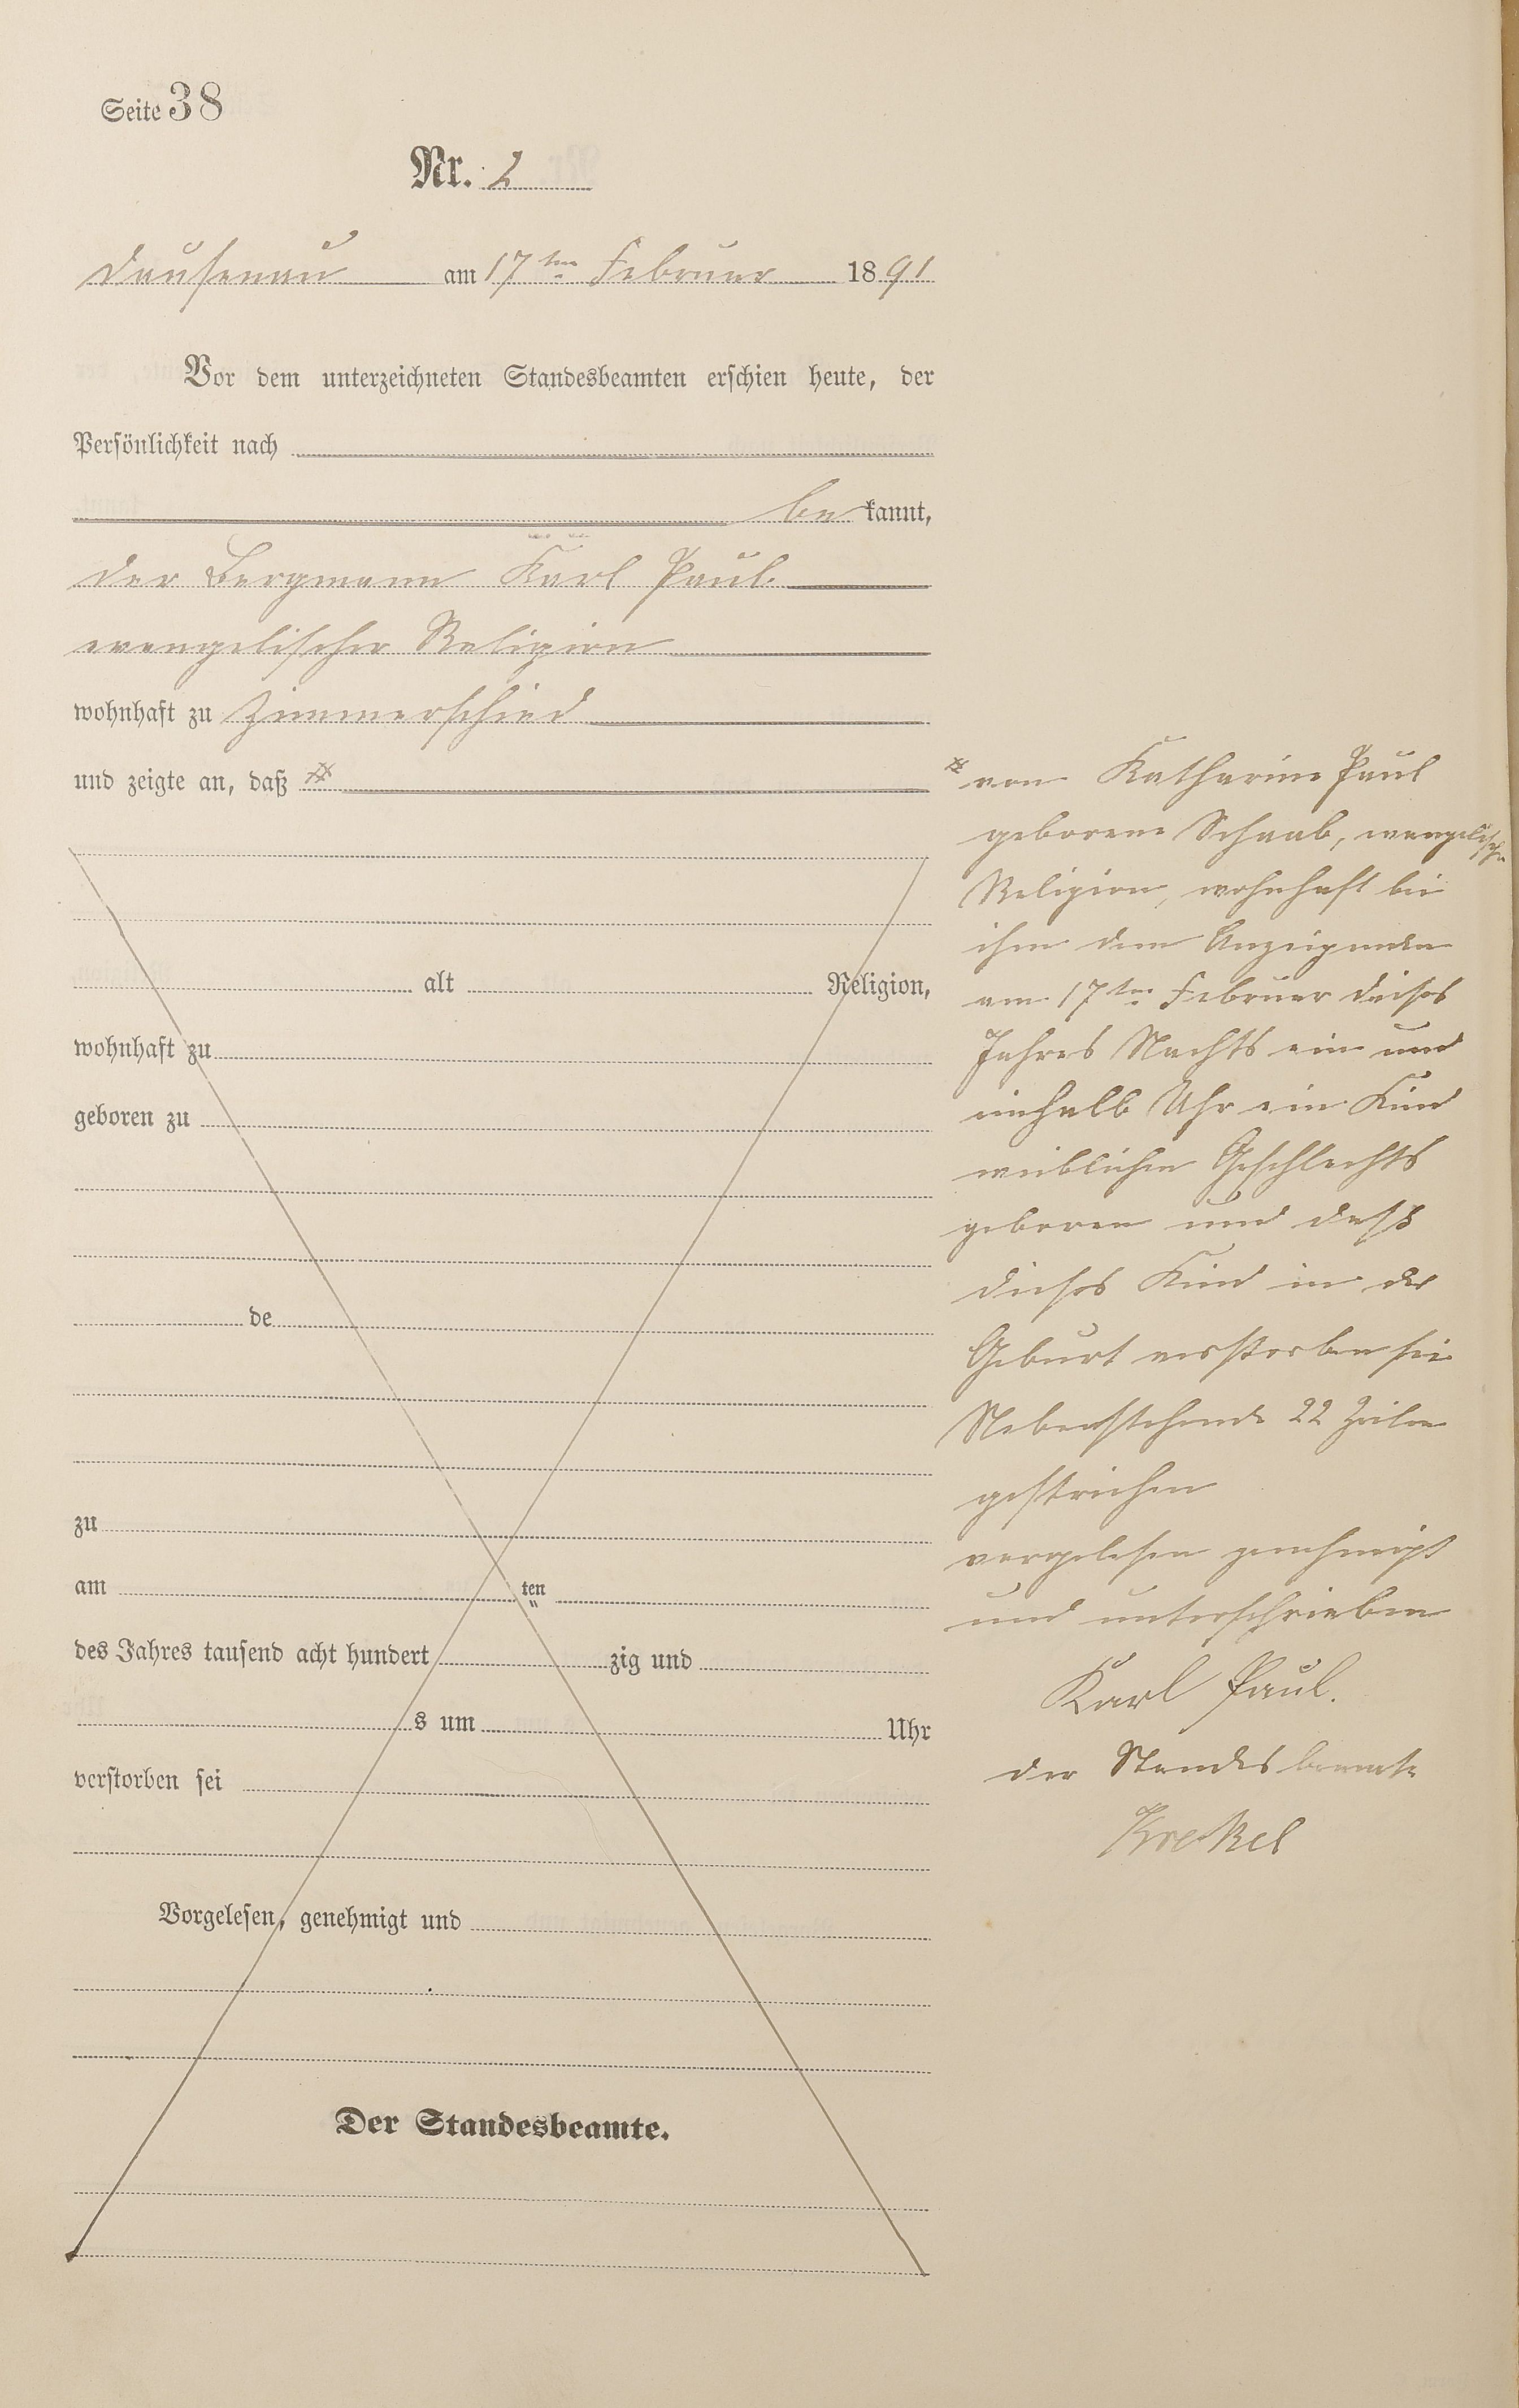 Seite 38
Nr. 2
Dausenau am 17ten Februar 1891
Vor dem unterzeichneten Standesbeamten erschien heute, der
Persönlichkeit nach
be kannt,
der Bergmann Karl Paul.
evangelischer Religion
wohnhaft zu Zimmerschied
und zeigte an, daß
alt Religion,
wohnhaft zu
geboren zu
de
zu
am ten
des Jahres tausend acht hundert zig und
s um Uhr
verstorben sei
Vorgelesen, genehmigt und
Der Standesbeamte.
von Katharine Paul
geborene Schaab, evangelischer
Religion, wohnhaft bei
ihm dem Anzeigenden
am 17ten Februar dieses
Jahres Nachts ein und
einhalb Uhr ein Kind
weiblichen Geschlechts
geboren und daß
dieses Kind in der
Geburt verstorben sei
Nebenstehende 22 Zeilen
gestrichen
vorgelesen genehmigt
und unterschrieben
Karl Paul.
der Standesbeamte
Krekel